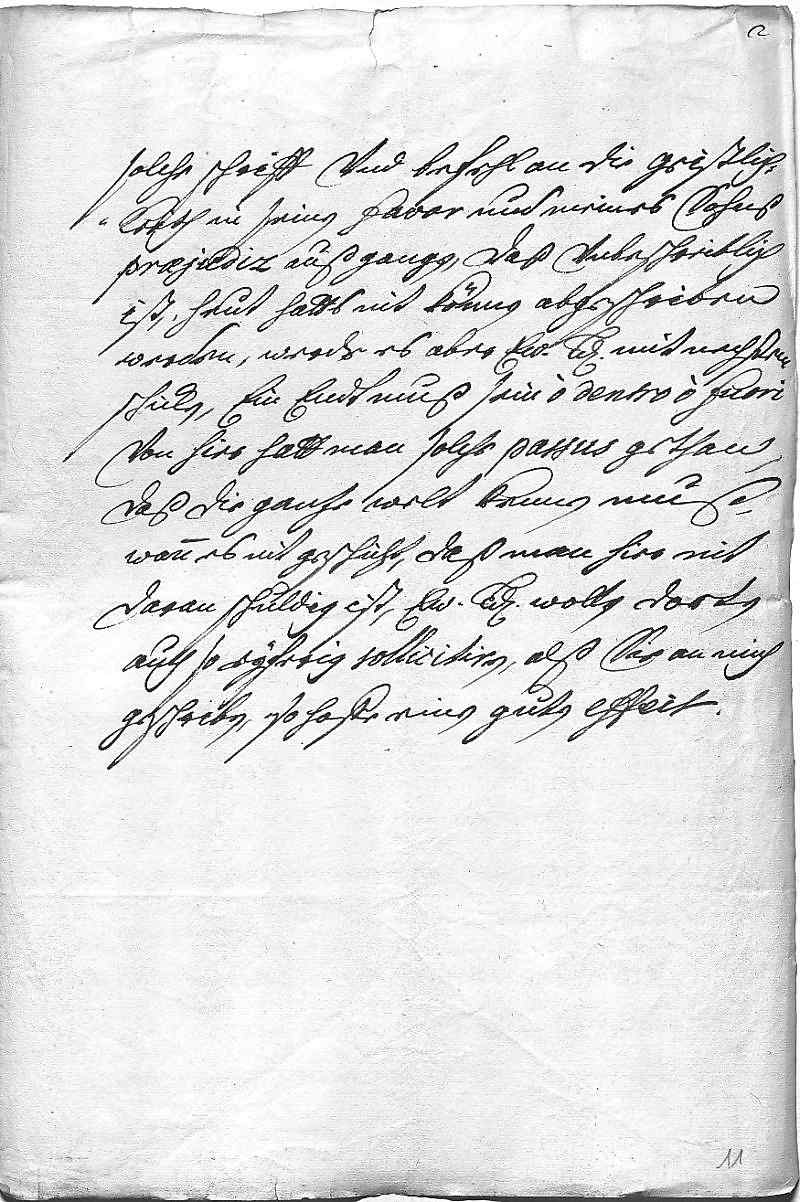 2
solche schrifft Vnd befehl an die geistlich-
Räth in seine favor und meines Sohns
præjudiz außgangen, daß Unbeschreiblich
ist, heut hatts nit können abgeschrieben
werden, werde es aber Ew. Ld. mit nechstem
schicken, Ein Endt muß sein ò dentro ò fuori
Von hier hatt man solche passus gethan,
daß die gantze welt kennen muß,
wan̄ es nit geschicht, daß man hier nit
daran schuldig ist, Ew. Ld. wollen dorten
auch so eyfferig sollicitiren, alß Sie an mich
geschrieben, so hoffe einen guten effect.
11